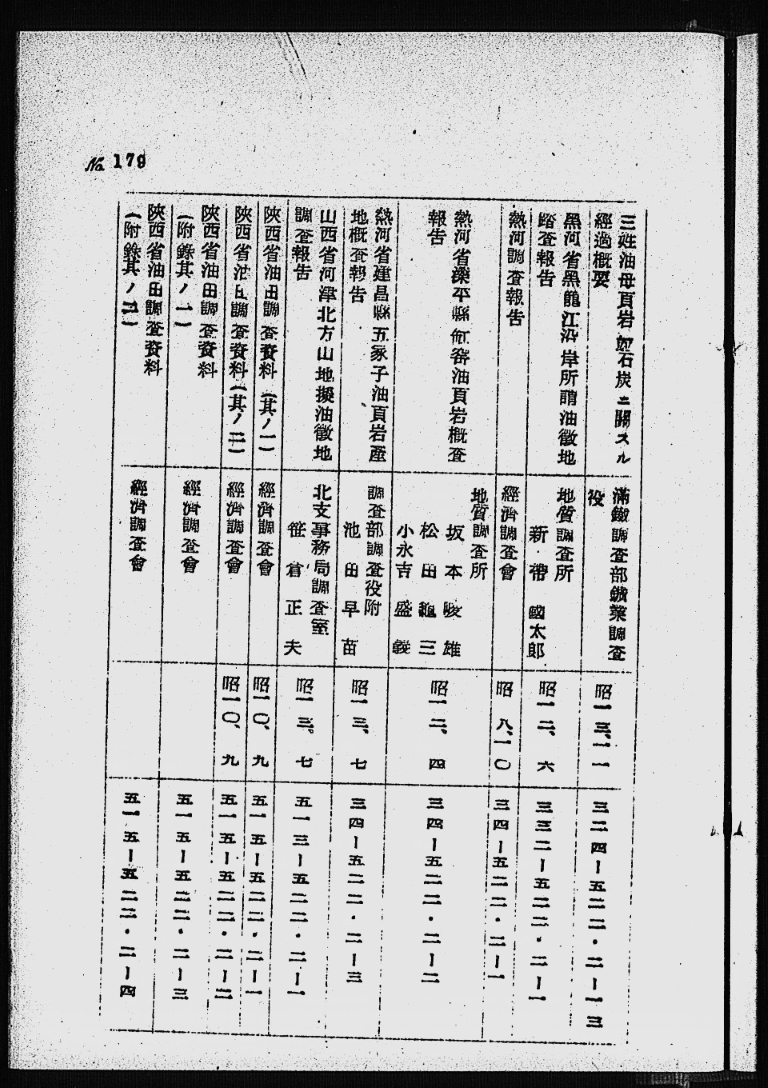 No. 179
三姓油母頁岩 石炭ニ關スル
經過概要
滿鐵調査部鑛業調査
役
昭一三、一一
三二四―五二二・二―一三
黑河省黑龍江沿岸所謂油徵地
踏査報告
地質調査所
新帶國太郎
昭一二、六
三三二―五二二・二―一
熱河調査報告
經濟調査會
昭 八、一〇
三四―五二二・二―一
熱河省灤平縣 窰油頁岩概査
報告
地質調査所
坂本峻雄
松田龜三
小永吉盛義
昭一二、四
三四―五二二・二―二
熱河省建昌縣五家子油頁岩產
地概査報告
調査部調査役附
池田早苗
昭一三、七
三四―五二二・二―三
山西省河津北方山地擬油徵地
調査報告
北支事務局調査室
笹倉正夫
昭一三、七
五一三―五二二・二―一
陝西省油田調査資料(其ノ一)
經濟調査會
昭一〇、九
五一五―五二二・二―一
陝西省油田調査資料(其ノ二)
經濟調査會
昭一〇、九
五一五―五二二・二―二
陝西省油田調査資料
(附錄其ノ一)
經濟調査會
五一五―五二二・二―三
陝西省油田調査資料
(附錄其ノ二)
經濟調査會
五一五―五二二・二―四